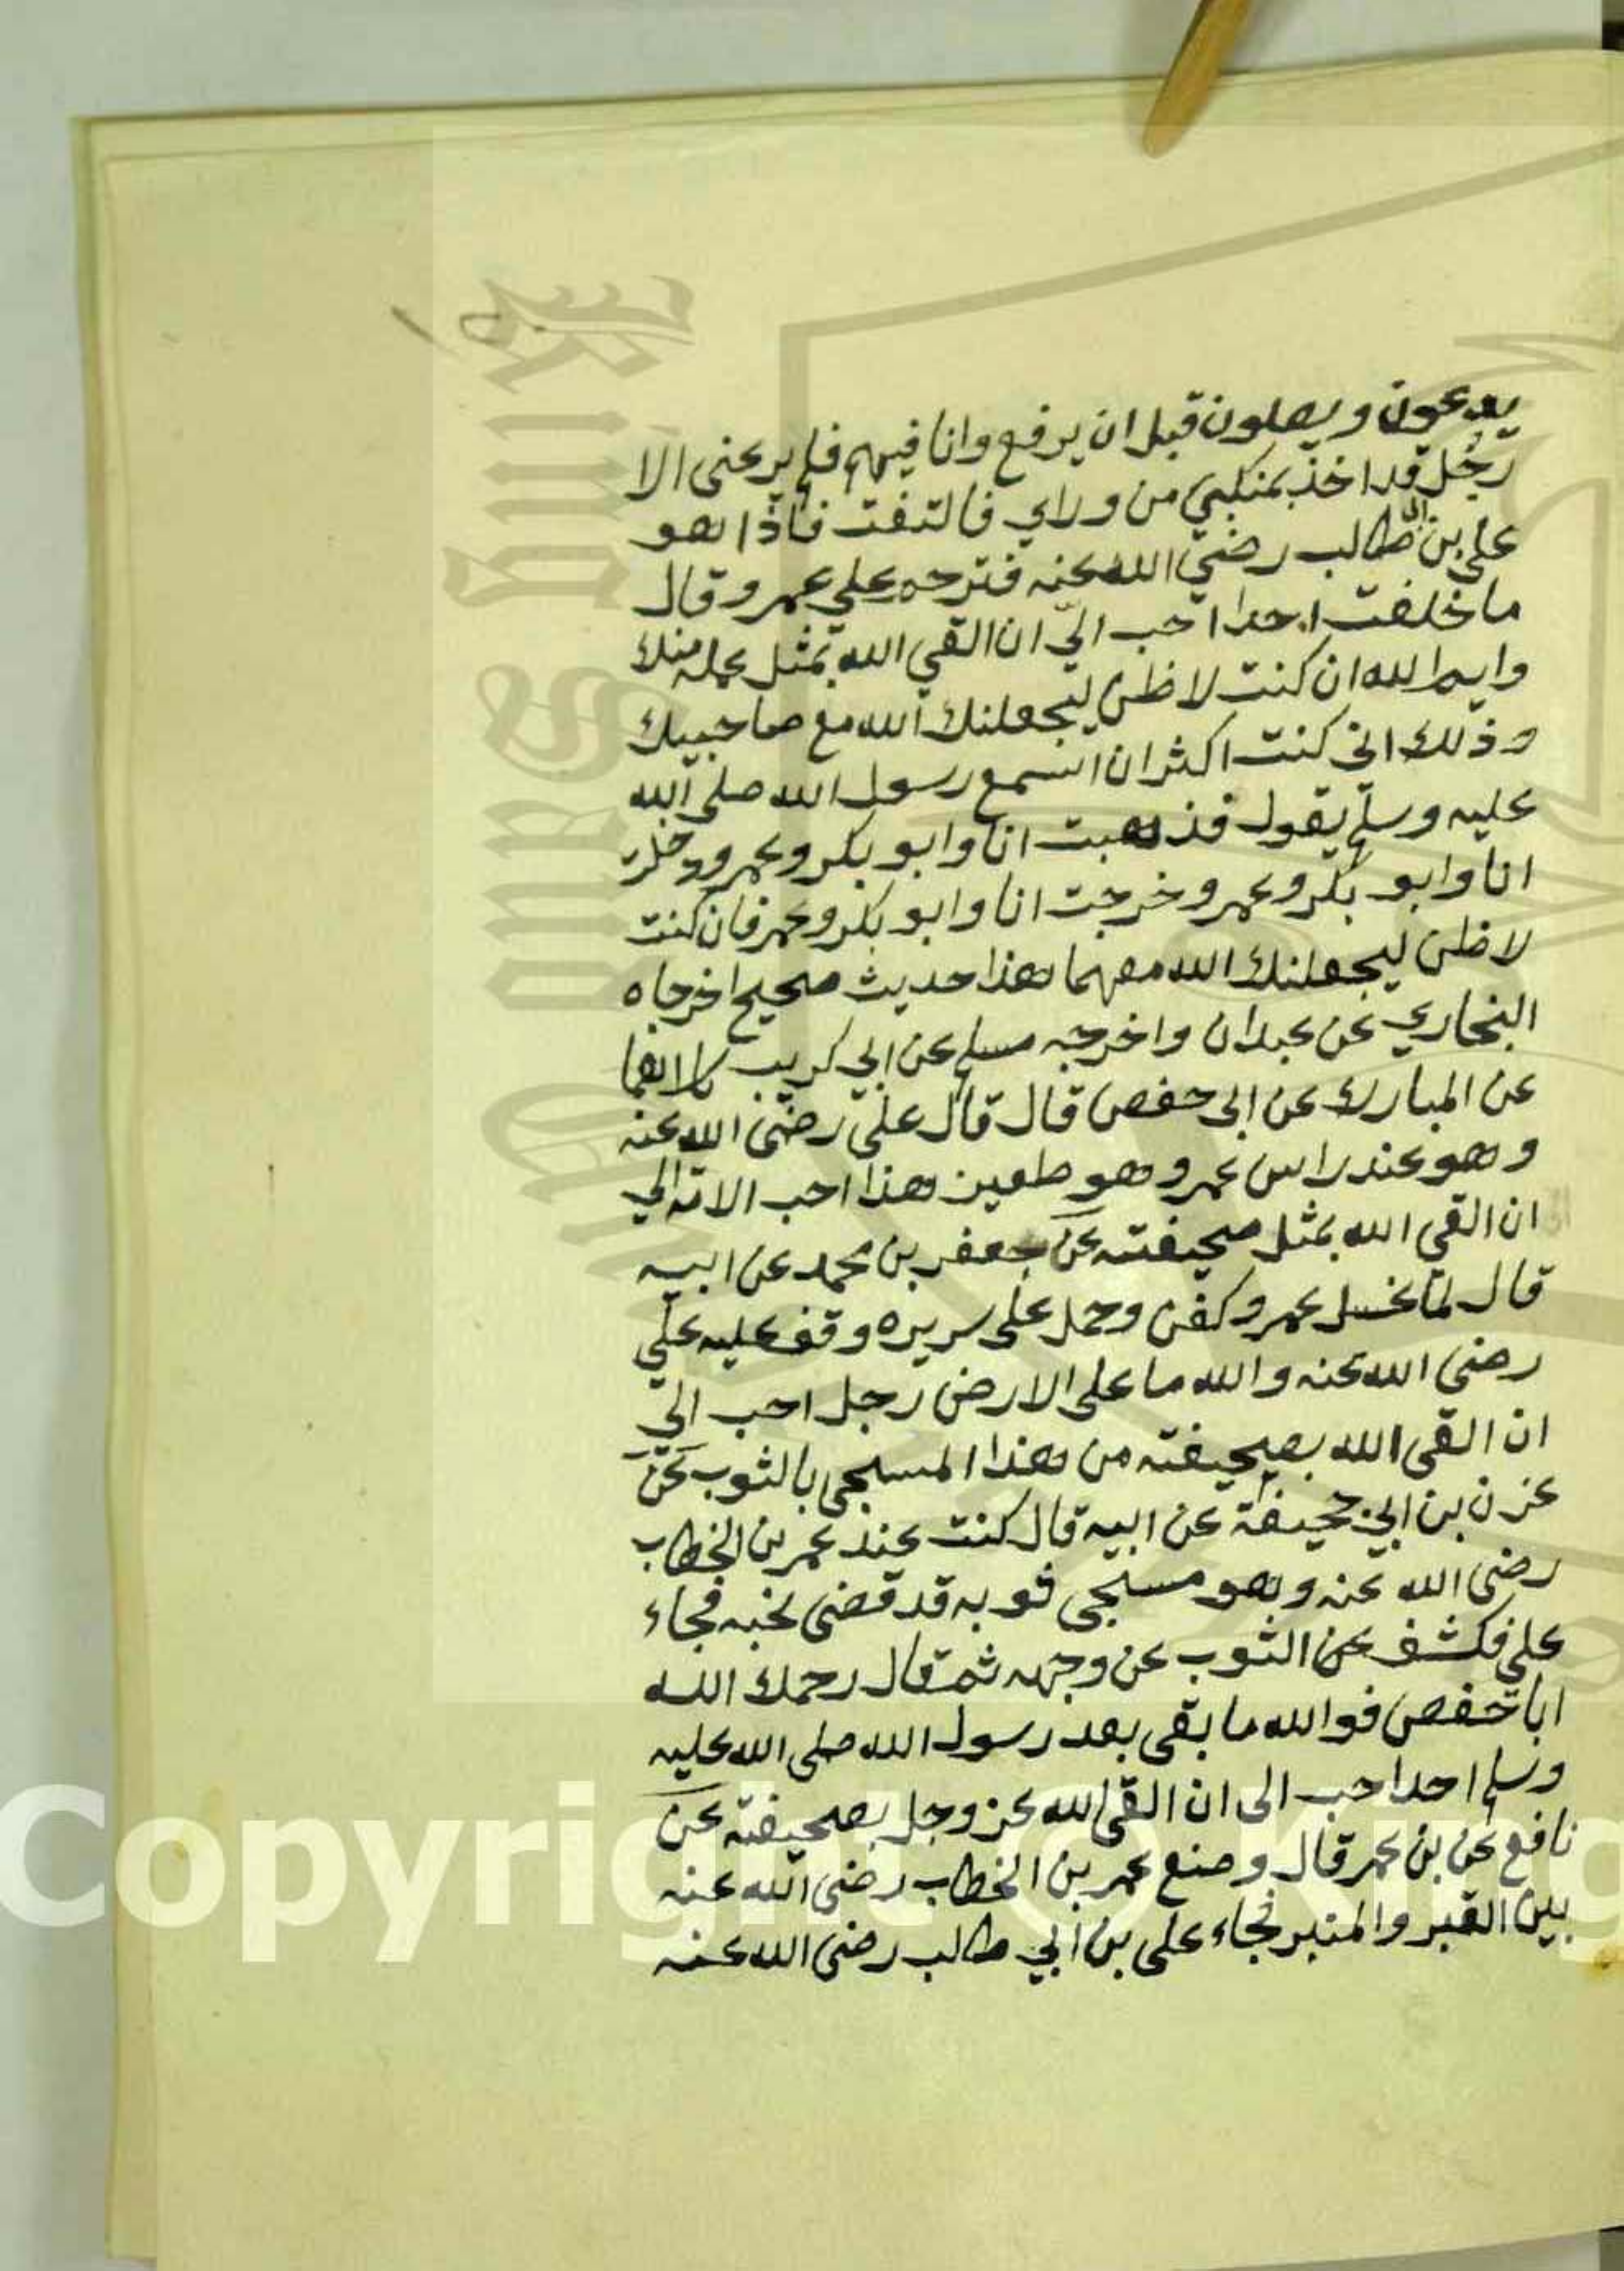 يدعون ويصلون قبل ان يرفع وانا فيهم فلم يرعني الا
رجُل قد اخذ بمنكبي من وراي فالتفت فاذا هو
علي بن ابي طالب رضي الله عنه فترحم علي عمر وقال
ما خلفت احدا احب اليّ ان القي الله بمثل عمله منك
وايم الله ان كنت لاظن ليجعلنك الله مع صاحبيك
وذلك اني كنت اكثر ان اسمع رسول الله صلى الله
عليه وسلم يقول فذهبت انا وابو بكر وعمر ودخلت
انا وابو بكر وعمر وخرجت انا وابو بكر وعمر فان كنت
لاظن ليجعلنك الله معهما هذا حديث صحيح اخرجاه
البخاري عن عبدان واخرجه مسلم عن ابي كريب كلاهما
عن المبارك عن ابى حفص قال قال على رضى الله عنه
وهو عند راس عمر وهو طعين هذا احب الامة الي
ان القي الله بمثل صحيفته عن جعفر بن محمد عن ابيه
قال لما غسل عمر وكفن وحمل على سريره وقف عليه علي
رضى الله عنه والله ما على الارض رجل احب الي
ان القى الله بصحيفته من هذا المسجى بالثوب عن
عزن بن ابي حجيفة عن ابيه قال كنت عند عمر بن الخطاب
رضى الله عنه وهو مسجى ثوبه قد قضى نحبه فجاء
علي فكشف عن الثوب عن وجهه ثم قال رحمك الله
ابا حفص فوالله ما بقى بعد رسول الله صلى الله عليه
وسلم احد احب الى ان القى الله عز وجل بصحيفته عن
نافع عن بن عمر قال وضع عمر بن الخطاب رضى الله عنه
بين القبر والمنبر فجاء على بن ابي طالب رضى الله عنه
Copyright © King